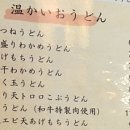 温かいおうどん
つねうどん
盛りわかめうどん
げもちうどん
干わかめうどん
く玉うどん
り天トロロこぶうどん
うどん(和牛特製肉使用)
エビ天あげもちうどん